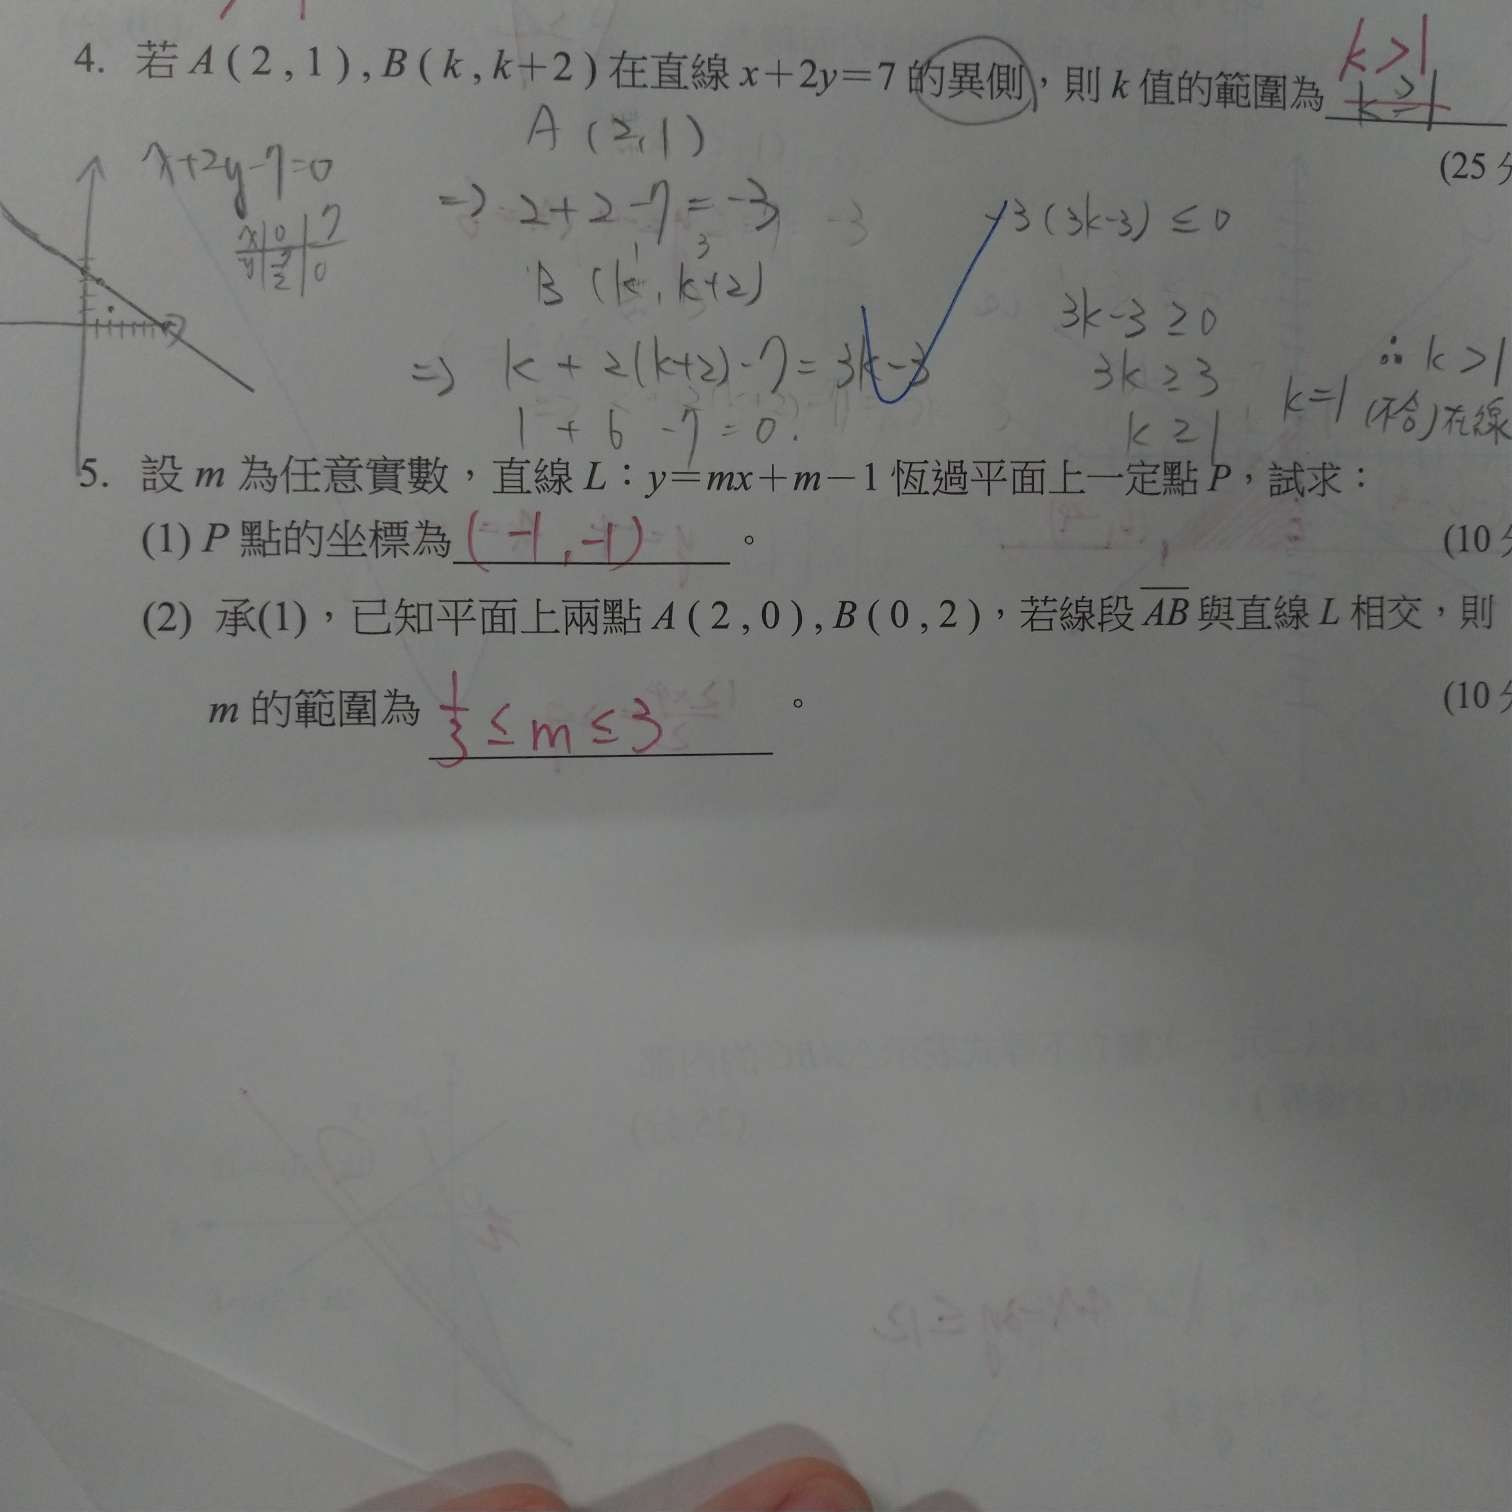 4. 若 A ( 2 , 1 ) , B ( k , k+2 ) 在直線 x+2y=7 的異側，則 k 值的範圍為 k>1
k≥1
(25 分
A (2,1)
x+2y-7=0
⇒ 2+2-7=-3
-3(3k-3) ≤ 0
x 0 7
y 7/2 0
1 3
B (k, k+2)
3k-3 ≥ 0
⇒ k + 2(k+2)-7 = 3k-3
3k ≥ 3
∴ k >1
1 + 6 -7 = 0.
k ≥ 1
k=1 (不合)在線
5. 設 m 為任意實數，直線 L：y=mx+m-1 恆過平面上一定點 P，試求：
(1) P 點的坐標為 (-1,-1) 。 (10 分
(2) 承(1)，已知平面上兩點 A ( 2 , 0 ) , B ( 0 , 2 )，若線段 AB 與直線 L 相交，則
m 的範圍為 1/3 ≤ m ≤ 3 。 (10 分